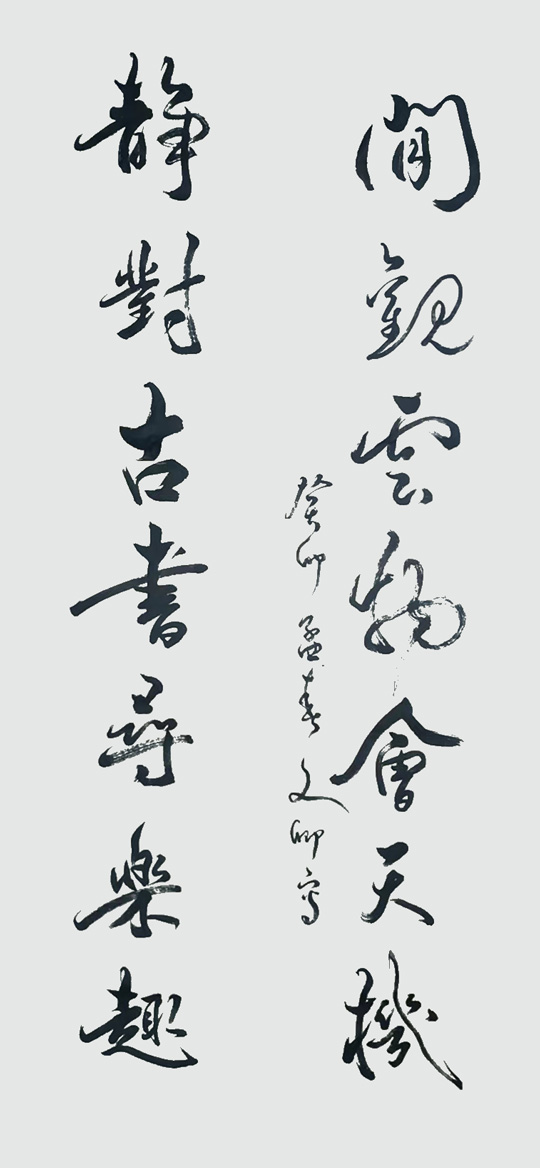 閒觀雲物會天機
癸卯孟春文卿寫
靜對古書尋樂趣